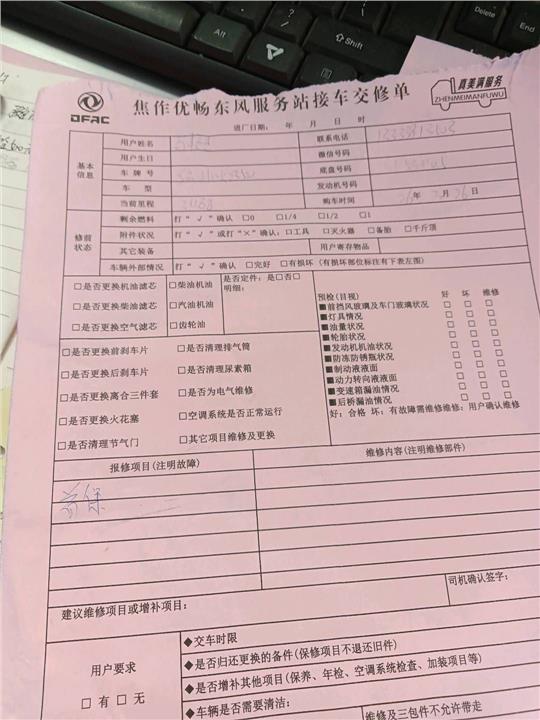 Alt
Shift
Delete
End
DFAC
焦作优畅东风服务站接车交修单
真美满服务
ZHENMEIMANFUWU
进厂日期: 年 月 日 时
基本信息
用户姓名
联系电话
用户生日
微信号码
车 牌 号
底盘号码
车 型
发动机号码
当前里程
购车时间
年 月 26 日
修前状态
剩余燃料 打“√”确认 □0 □1/4 □1/2 □1
附件状况 打“√”或打“×”确认:□工具 □灭火器 □备胎 □千斤顶
其它装备 用户寄存物品
车辆外部情况 打“√”确认 □完好 □有损坏(有损坏部位标注有下表左图)
□是否更换机油滤芯 □柴油机油 是否定件:是□否□
明细:
□是否更换柴油滤芯 □汽油机油
□是否更换空气滤芯 □齿轮油
预检(目视) 好 坏 维修
■前挡风玻璃及车门玻璃状况 □ □ □
■灯具情况 □ □ □
■油量状况 □ □ □
■轮胎状况 □ □ □
■发动机机油状况 □ □ □
■防冻防锈瓶状况 □ □ □
■制动液液面 □ □ □
■动力转向液液面 □ □ □
■变速箱漏油情况 □ □ □
■后桥漏油情况 □ □ □
好:合格 坏:有故障需维修维修:用户确认维修
□是否更换前刹车片 □是否清理排气筒
□是否更换后刹车片 □是否清理尿素箱
□是否更换离合三件套 □是否为电气维修
□是否更换火花塞 □空调系统是否正常运行
□是否清理节气门 □其它项目维修及更换
报修项目(注明故障) 维修内容(注明维修部件)
首保
建议维修项目或增补项目:
司机确认签字:
用户要求
□有 □无
◆交车时限
◆是否归还更换的备件(保修项目不退还旧件)
◆是否增补其他项目(保养、年检、空调系统检查、加装项目等)
◆车辆是否需要清洁:
维修及三包件不允许带走